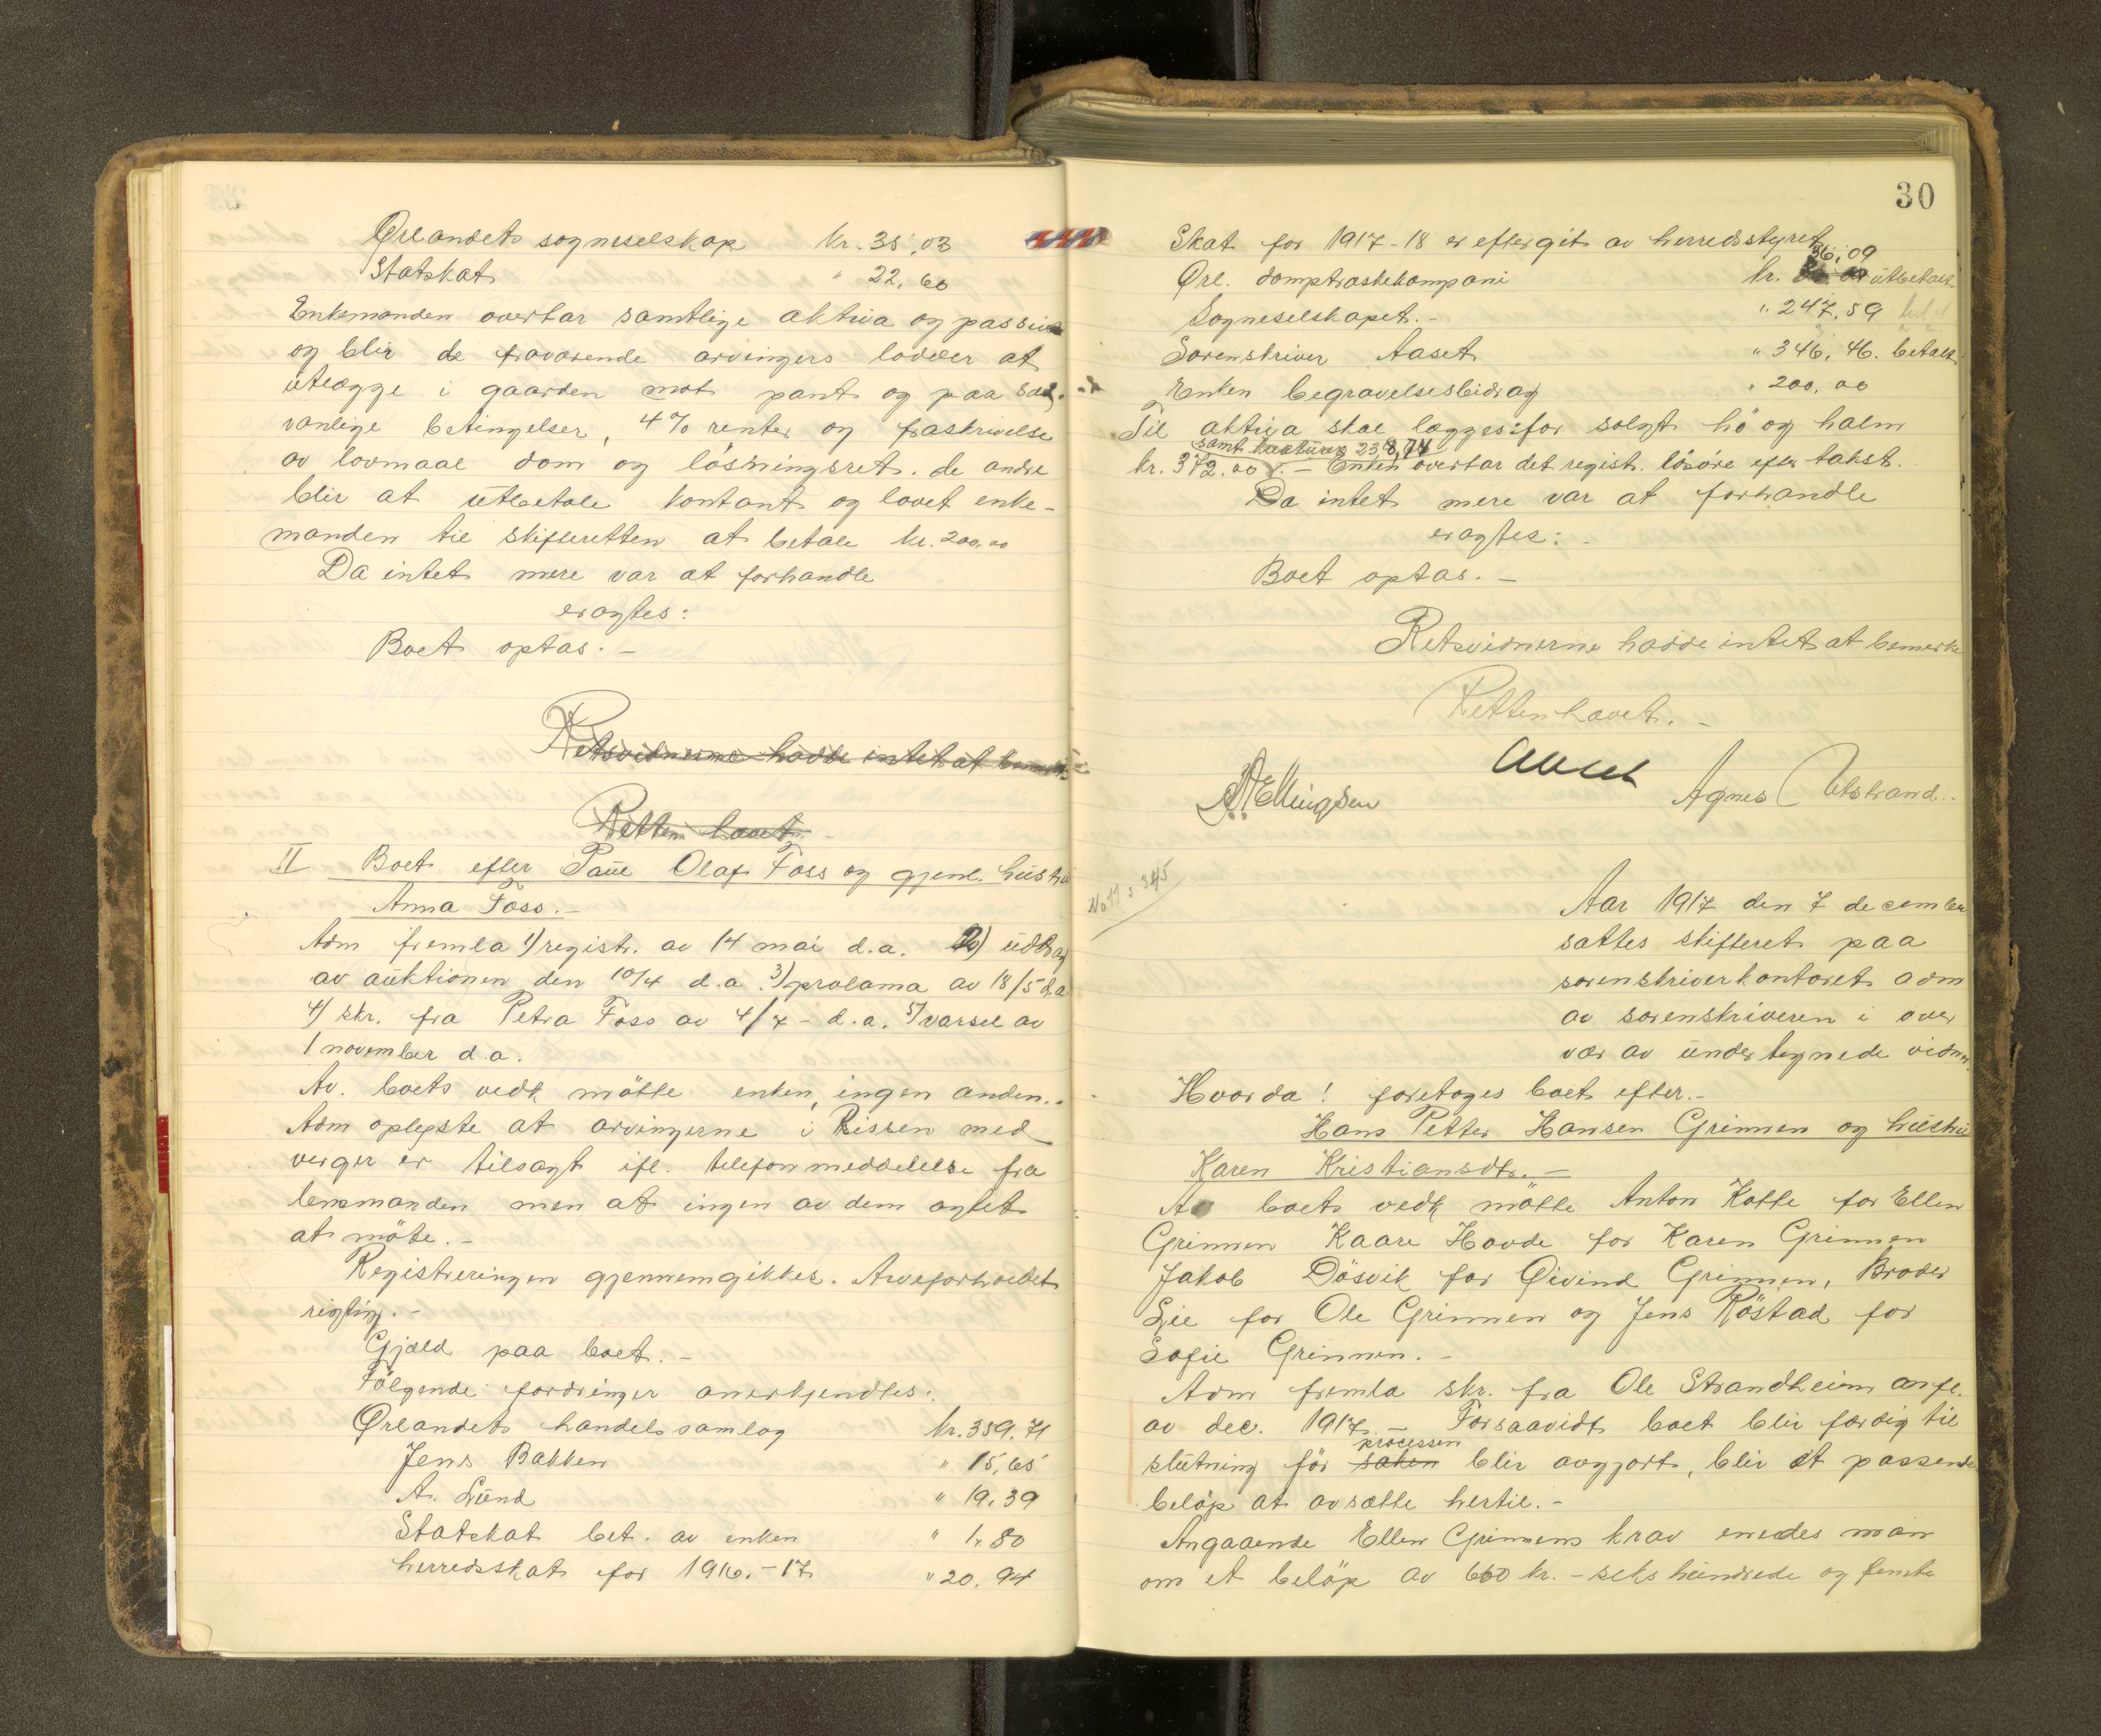 Ørlandets sogneselskap kr. 35,03
Statskat " 22,60
Enkemanden overtar samtlige aktiva og passiva
og blir de fraværende arvingers lodder at
utlægge i gaarden mot pant og paa sæd-
vanlige betingelser, 4% renter og fraskrivelse
av lovmaal dom og løsningsret. de andre
blir at utbetale kontant og lovet enke-
manden til skifteretten at betale kr. 200,00
Da intet mere var at forhandle
eragtes:
Boet optas. -
Retsvidnerne hadde intet at bemerke
Retten hævet. -
II Boet efter Paul Olaf Foss og gjenl. hustru
Anna Foss. -
Adm fremla 1) regist. av 14 mai d.a. 2) udtog
av auktionen den 10/4 d.a. 3) prolama av 18/5 d.a.
4) skr. fra Petra Foss av 4/7 - d.a. 5) varsel av
1 november d.a.
Av. boets vedk møtte enken, ingen anden. -
Adm oplyste at arvingerne i Rissen med
verger er tilsagt ifl. telefonmeddelelse fra
lensmanden men at ingen av dem agtet
at møte. -
Registreringen gjennemgikkes. Arveforholdet
rigtig. -
Gjæld paa boet. -
Følgende fordringer anerkjendtes:
Ørlandets handelssamlag kr. 359.71
Jens Bakken " 15,65
A. Lund " 19,39
Statskat bet. av enken " 1,80
herredsskat for 1916.-17 " 20,94
30
Skat for 1917-18 er eftergit av herredsstyret
36,09
Ørl. damptræskekompani kr. utbetalt
Sogneselskapet. - " 247,59
Sorenskriver Aaset " 346,46. betalt
Enken begravelsesbidrag " 200,00
Til aktiva skal lægges: for solgt hø og halm
samt 238,74
kr. 372.00 . - Enken overtar det regist. løsøre efter takst.
Da intet mere var at forhandle
eragtes: -
Boet optas. -
Retsvidnerne hadde intet at bemerke
Retten hævet. -
Aaset
Ellingsen Agnes Utstrand. -
No 11 s. 345
Aar 1917 den 7 december
sattes skifteret paa
sorenskriverkontoret adm
av sorenskriveren i over
vær av undertegnede vidner.
Hvorda! foretoges boet efter. -
Hans Petter Hansen Grinnen og hustru
Karen Kristiansdtr. -
Av boets vedk møtte Anton Kotte for Ellen
Grinnen Kaare Hovde for Karen Grinnen
Jakob Døsvik for Øivind Grinnen, Broder
Lie for Ole Grinnen og Jens Røstad for
Sofie Grinnen. -
Adm fremla skr. fra Ole Strandheim
av dec. 1917. - Forsaavidt boet blir færdig til
processen
slutning før saken blir avgjort, blir et passende
beløp at avsætte hertil. -
Angaaende Ellen Grinnens krav enedes man
om et beløp av 650 kr. - seks hundrede og femti